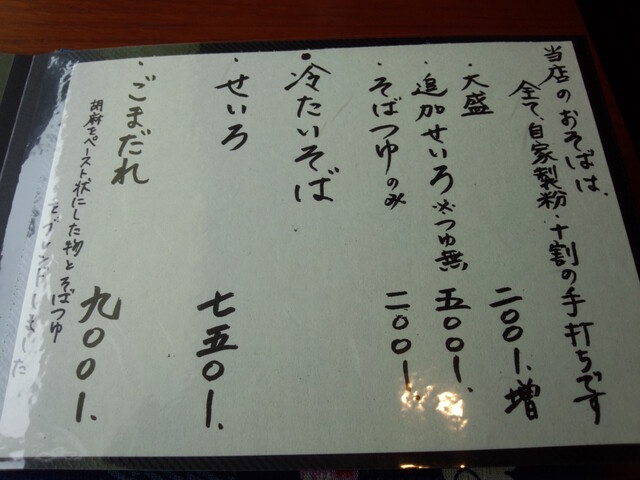 当店のおそばは、
全て、自家製粉・十割の手打ちです
・大盛 二〇〇、増
・追加せいろ ※つゆ無 五〇〇、
・そばつゆのみ 二〇〇、
・冷たいそば
・せいろ 七五〇、
・ごまだれ 九〇〇、
胡麻をペースト状にした物とそばつゆ
をブレンドしました